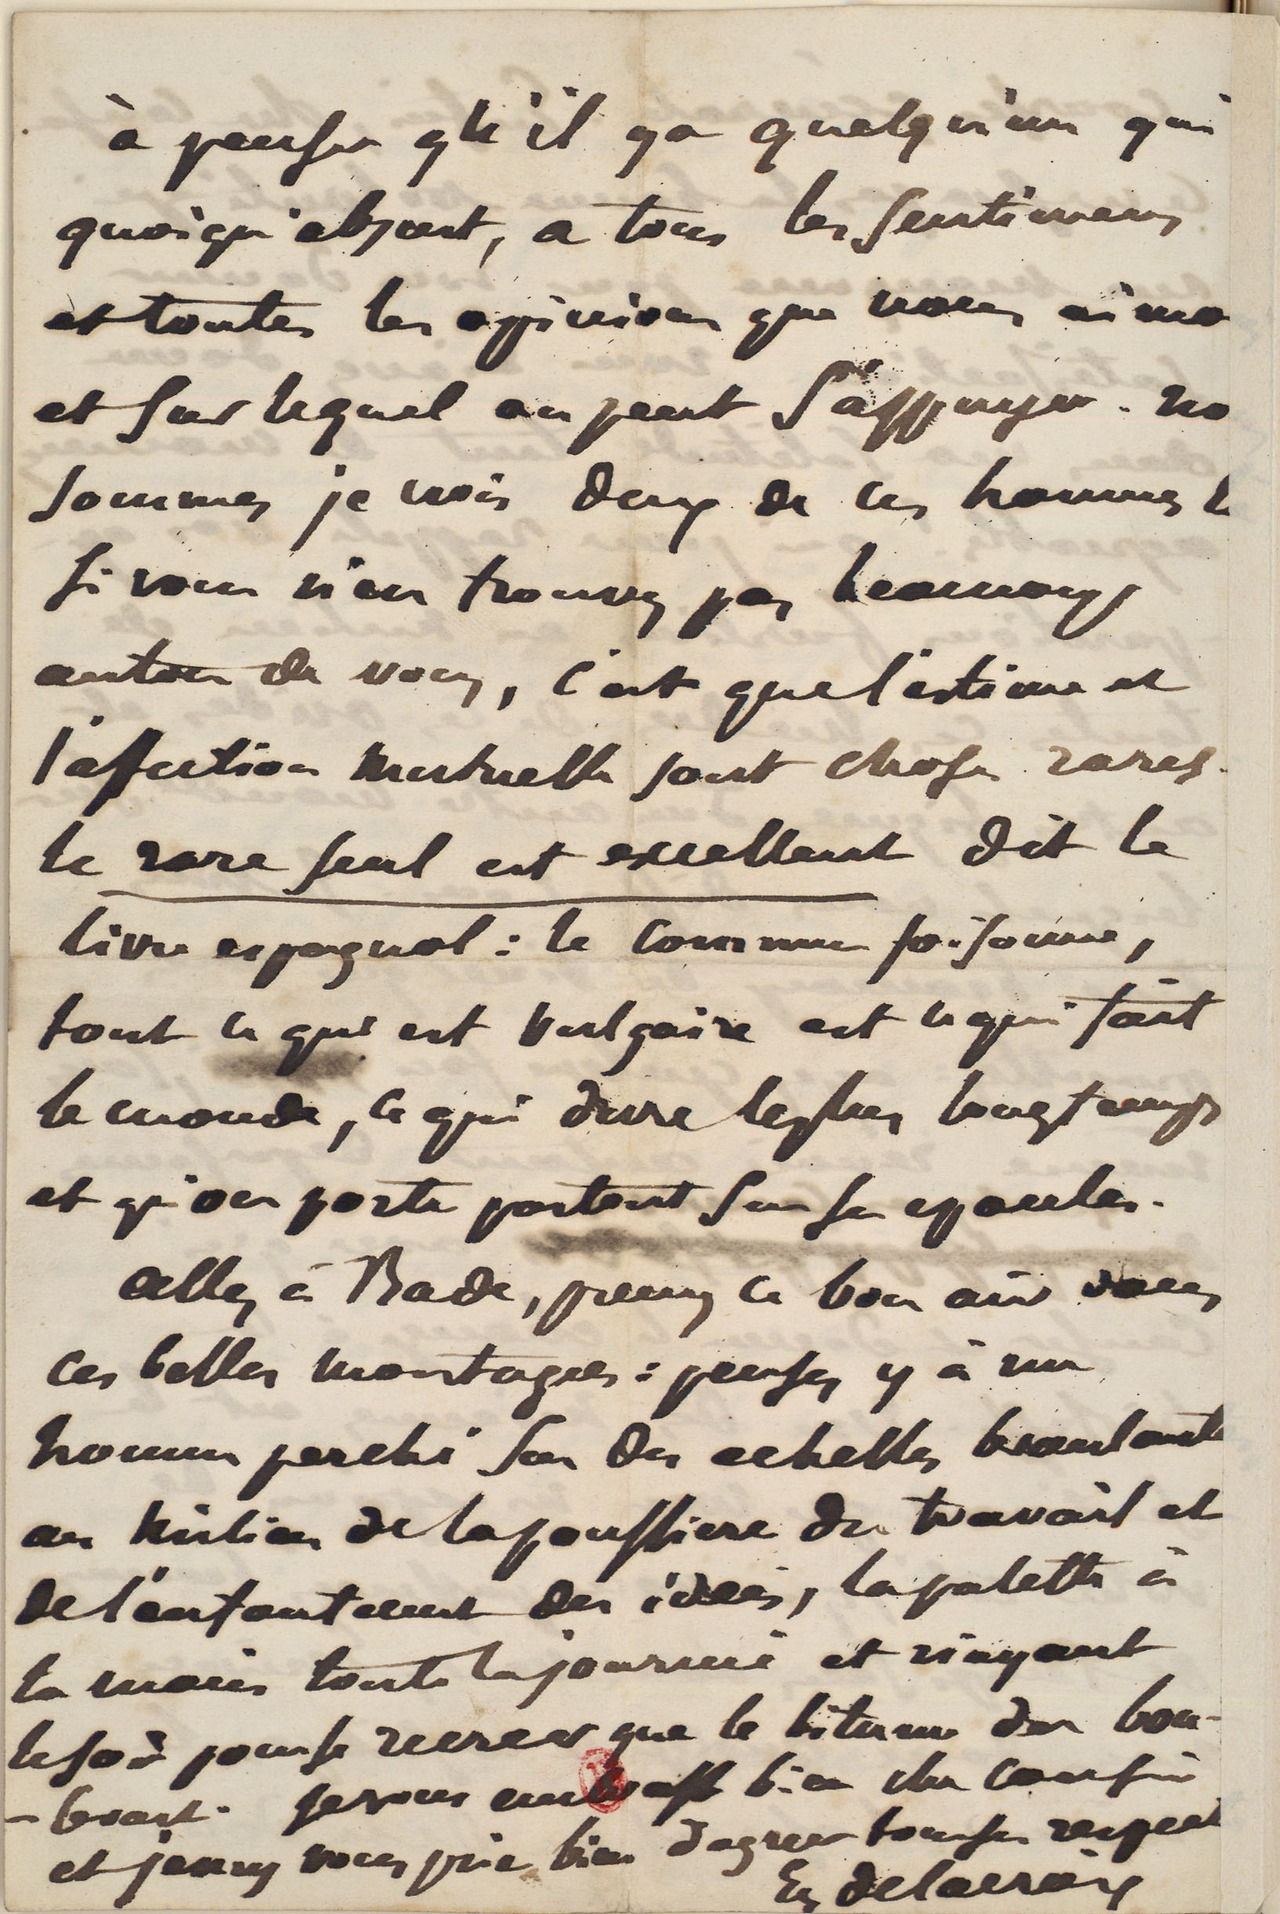 à penser qu'il y a quelqu'un qui
quoiqu'absent, a tous les sentimens
et toutes les opinions que nous aimo
et sur lequel on peut s'appuyer. no
sommes je crois deux de ces hommes là
si vous n'en trouvez pas beaucoup
autour de vous, c'est que l'estime et
l'affection mutuelle sont choses rares.
le rare seul est excellent dit le
livre espagnol : le commun foisonne,
tout ce qui est vulgaire est ce qui fait
le monde, ce qui dure le plus longtemps
et qu'on porte partout sur ses epaules.
allez à Bade, prenez ce bon air voyez
ces belles montagnes : pensez y à un
homme perché sur des echelles branlantes
au milieu de la poussiere du travail et
de l'enfantement des idées, la palette à
la main toute la journée et n'ayant
le soir pour se recreer que le bitume du bou-
-levart. Je vous embrasse bien cher cousin
et jenny vous prie bien d'agreer tous ses respects
Eug delacroix